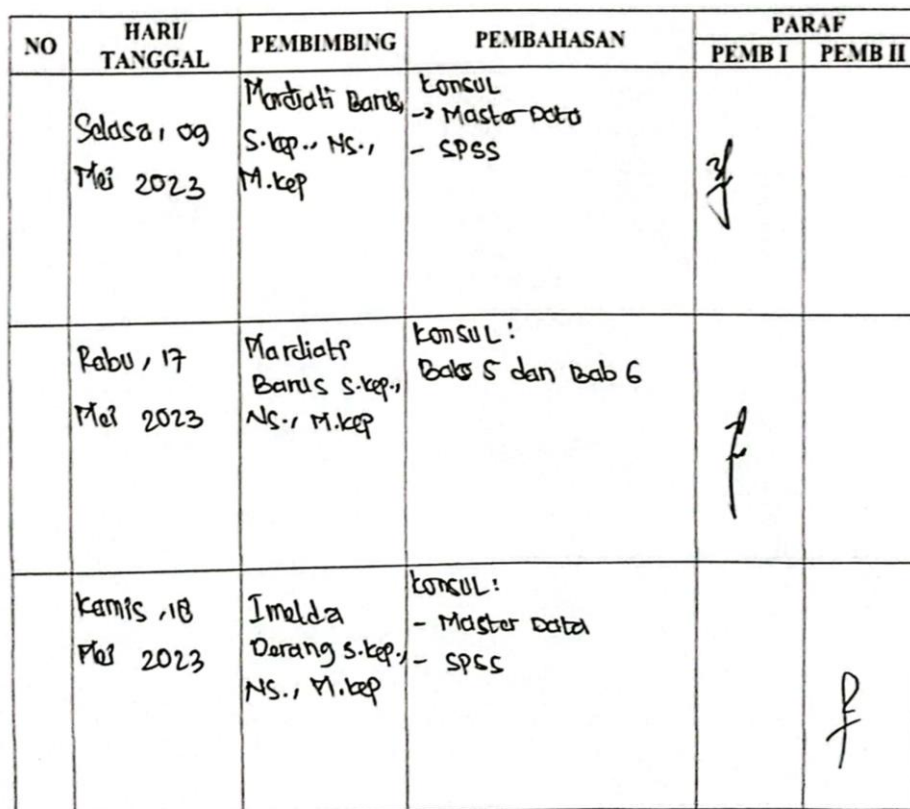 NO HARI/ TANGGAL PEMBIMBING PEMBAHASAN PARAF
PEMB I PEMB II
Selasa, 09
Mei 2023
Mardiati Barus,
S.kep., NS.,
M.kep
Konsul
-> Master Data
- SPSS
Rabu, 17
Mei 2023
Mardiati
Barus S.kep.,
NS., M.kep
Konsul:
Bab 5 dan Bab 6
Kamis, 18
Mei 2023
Imelda
Derang S.kep.,
NS., M.kep
Konsul:
- Master Data
- SPSS